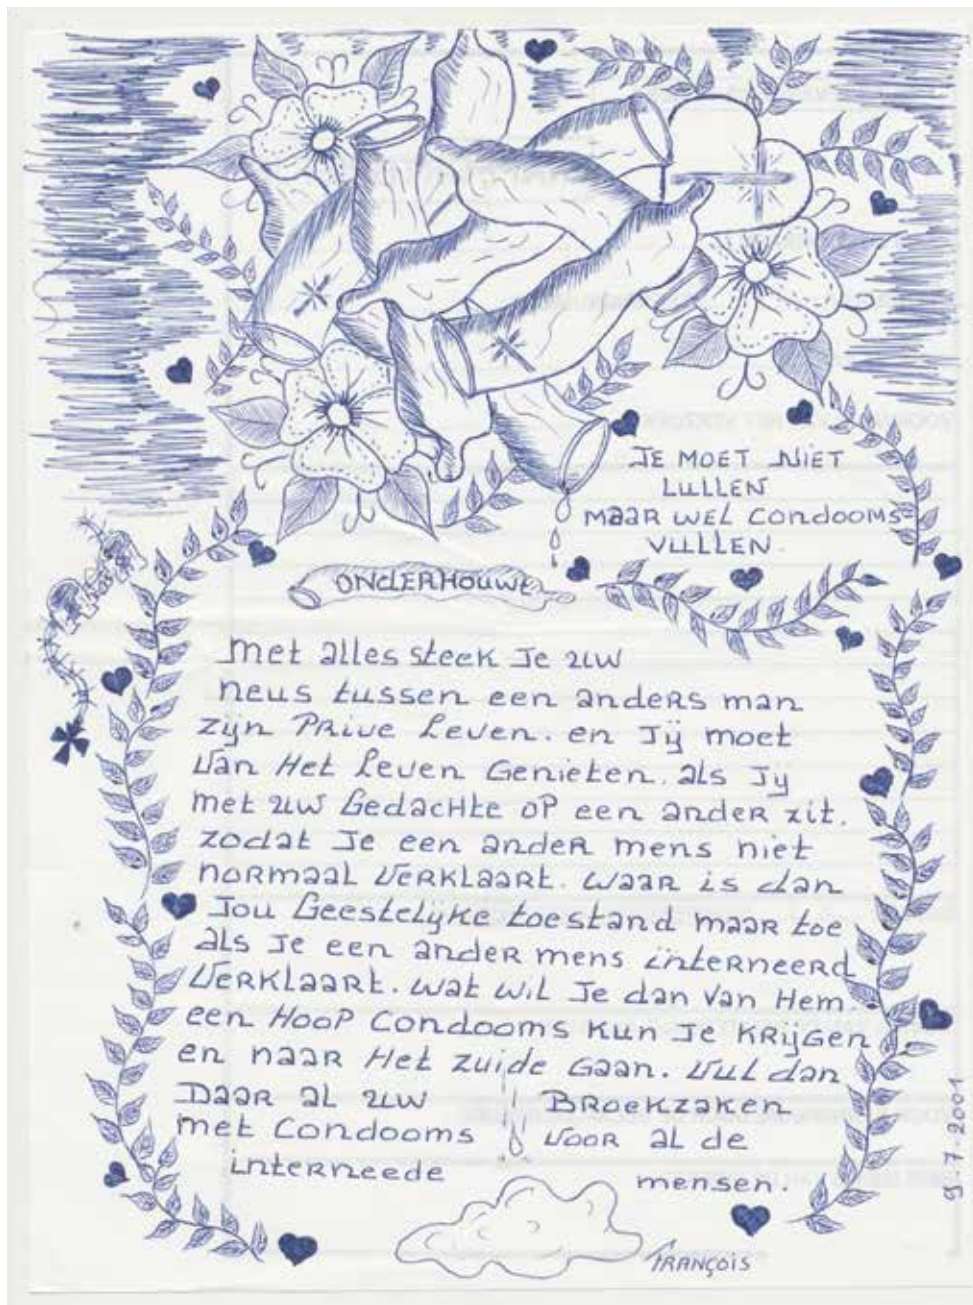 JE MOET NIET
LULLEN
MAAR WEL CONDOOMS
VULLEN.
ONDERHOUWE
Met alles steek Je uw
neus tussen een anders man
zijn Prive Leven. en Jij moet
Van Het Leven Genieten. als Jij
met uw Gedachte op een ander zit.
zodat Je een ander mens niet
normaal Verklaart. waar is dan
Jou Geestelijke toestand maar toe
als Je een ander mens interneerd
Verklaart. wat wil Je dan van Hem.
een Hoop Condooms kun Je krijgen
en naar Het zuide Gaan. Vul dan
Daar al uw Broekzaken
met Condooms voor al de
interneede mensen.
FRANÇOIS
9-7-2001